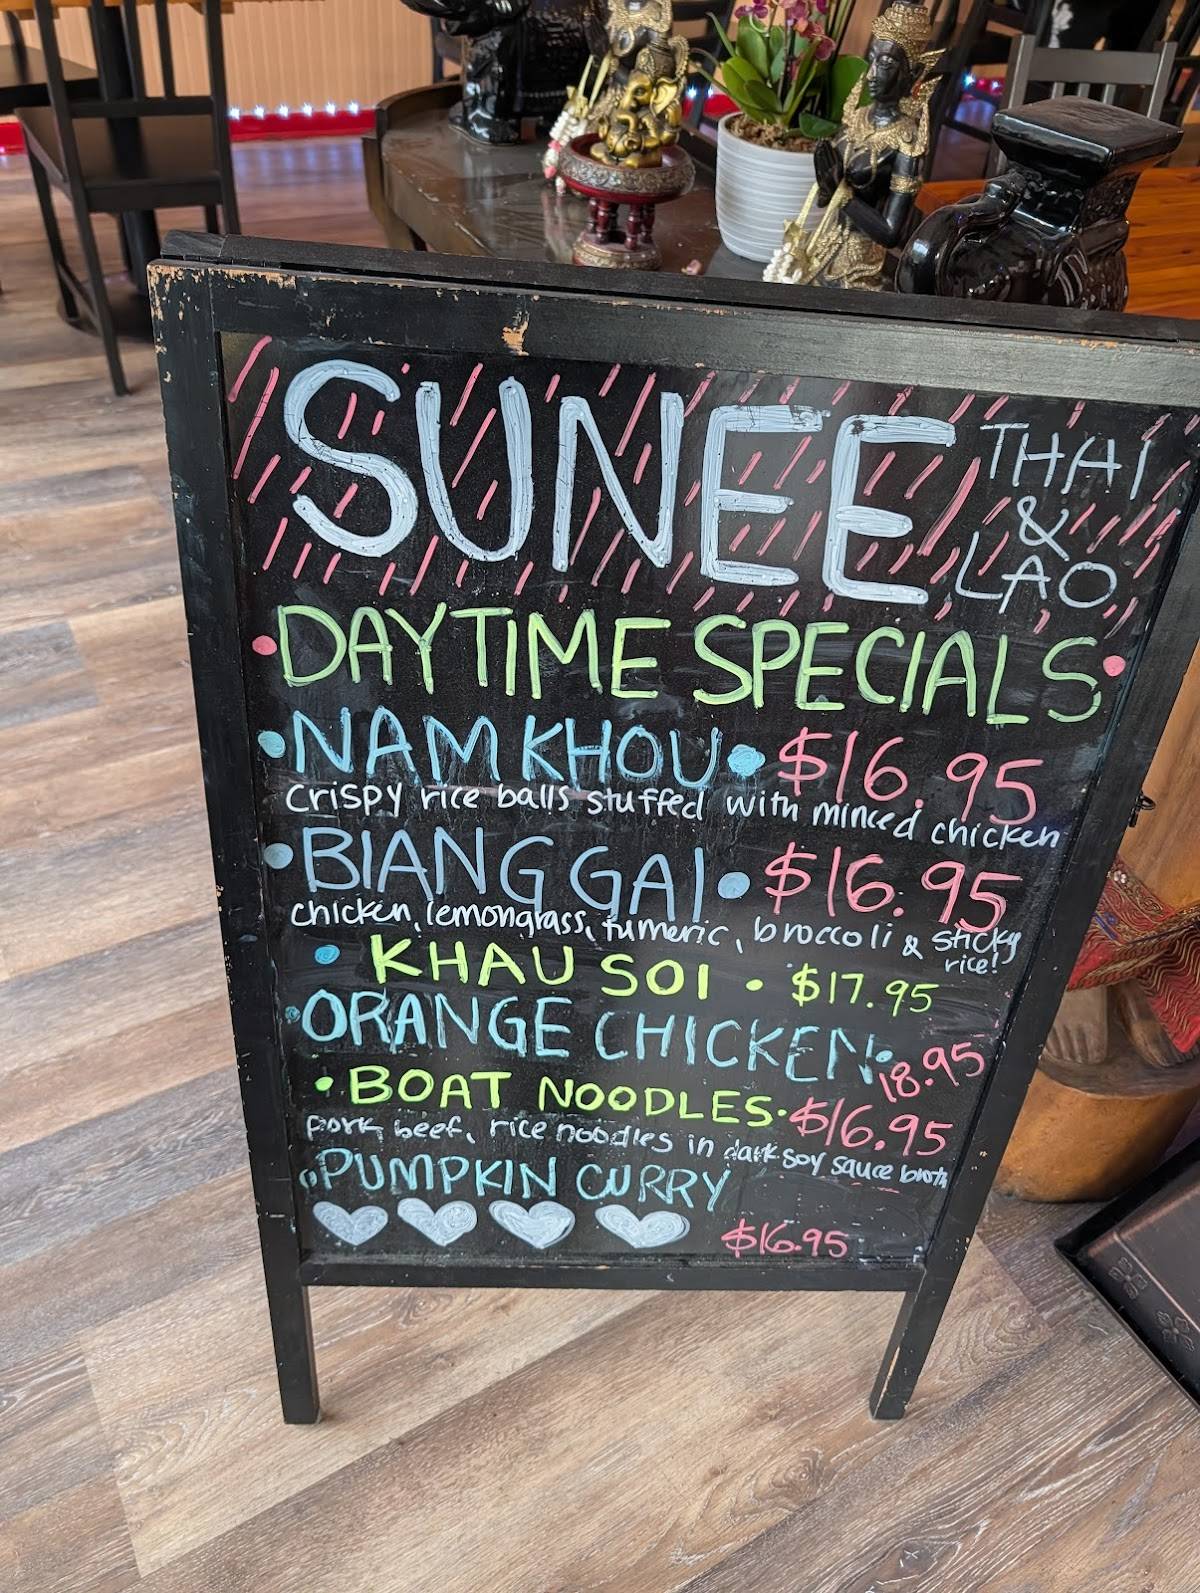 SUNEE
THAI
&
LAO
DAYTIME SPECIALS
NAM KHOU • $16.95
crispy rice balls stuffed with minced chicken
BIANG GAI • $16.95
chicken, lemongrass, tumeric, broccoli & sticky
rice!
KHAU SOI • $17.95
ORANGE CHICKEN • 18.95
• BOAT NOODLES • $16.95
pork, beef, rice noodles in dark soy sauce broth
PUMPKIN CURRY
$16.95